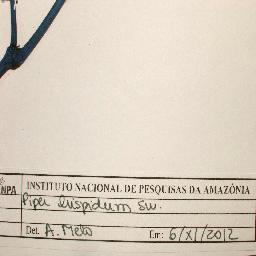 INPA INSTITUTO NACIONAL DE PESQUISAS DA AMAZÔNIA
Piper hispidum Sw.
Det. A. Melo Em: 6/XI/2012